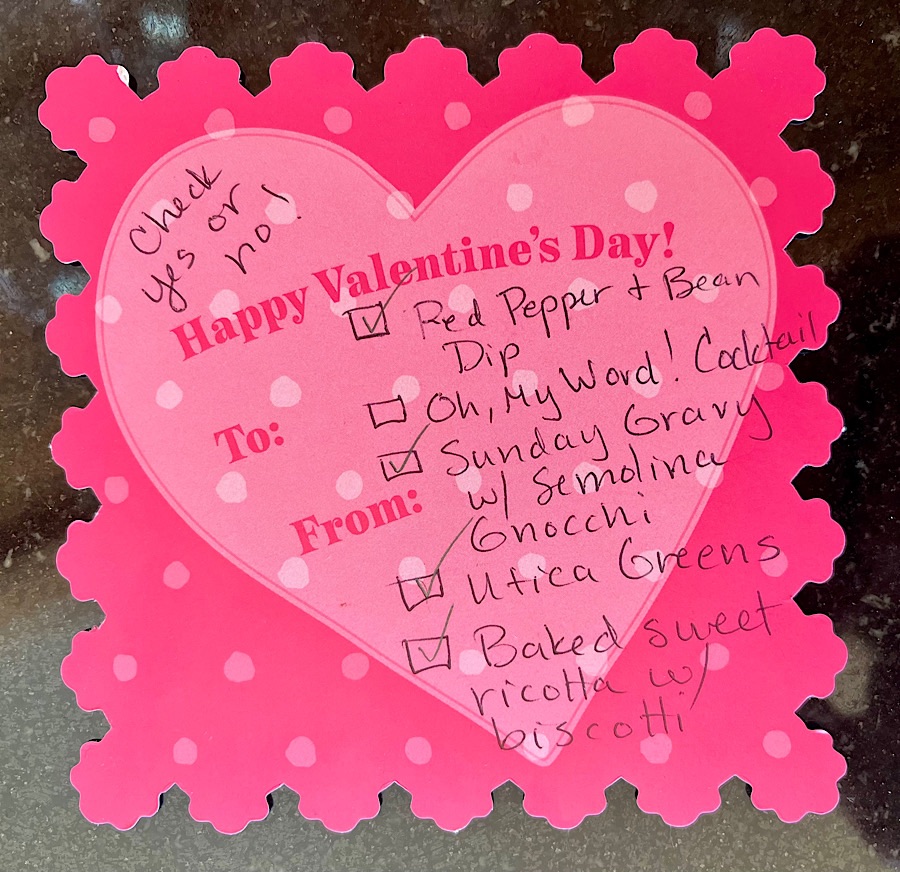 Check
yes or
no!
Happy Valentine's Day!
Red Pepper + Bean
Dip
Oh, My Word! Cocktail
To:
Sunday Gravy
w/ Semolina
Gnocchi
From:
Utica Greens
Baked sweet
ricotta w/
biscotti